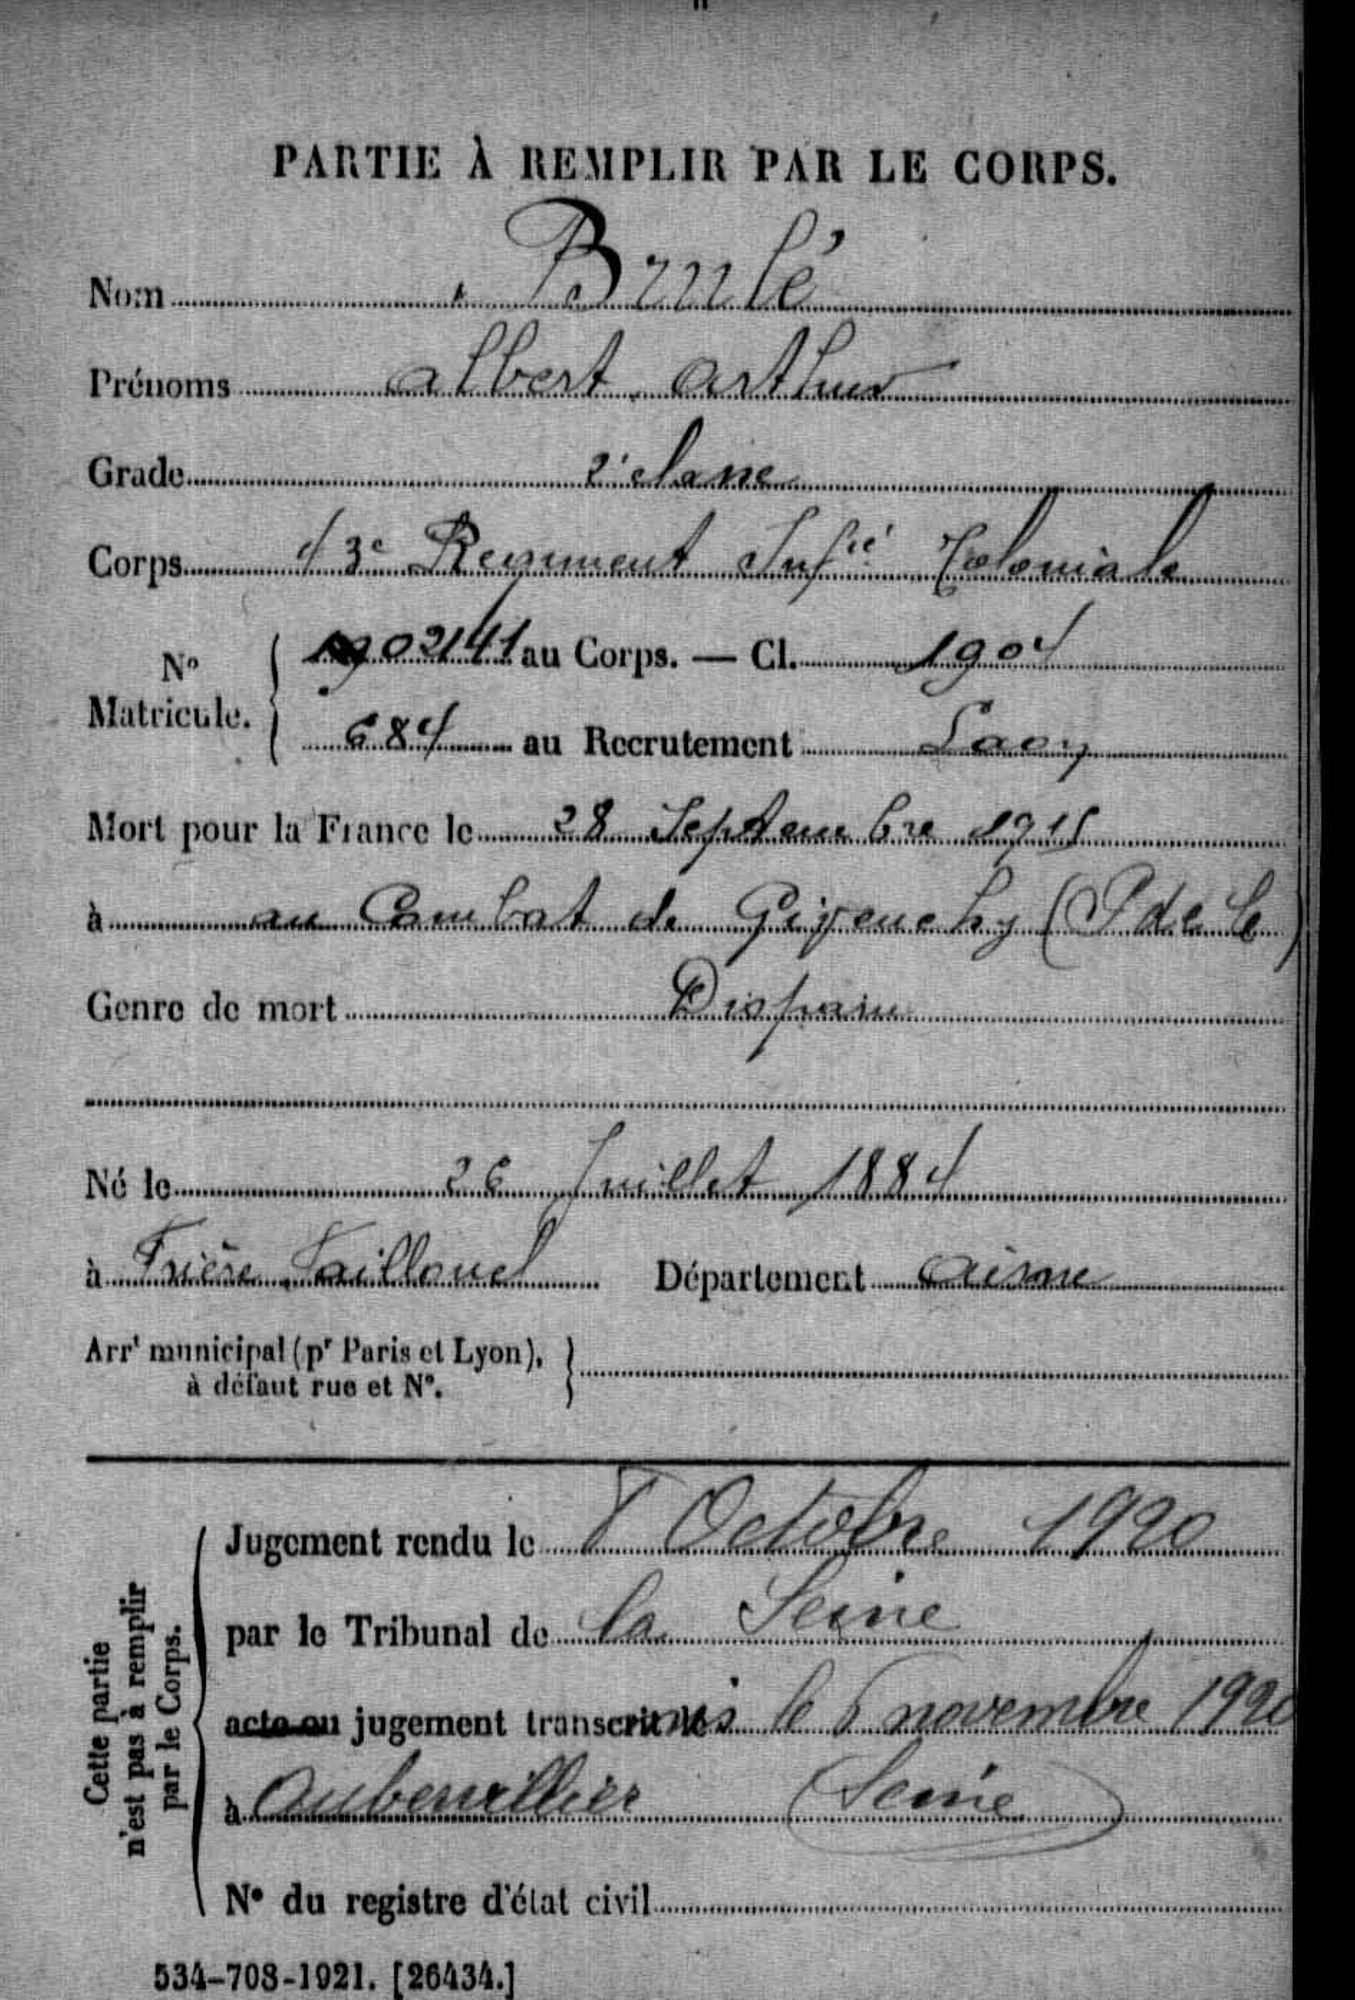 PARTIE À REMPLIR PAR LE CORPS.
Nom Brulé
Prénoms Albert Arthur
Grade 2e classe
Corps 43e Regiment Infie Coloniale
No Matricule. 1902141 au Corps. — Cl. 1904
684 au Recrutement Laon
Mort pour la France le 28 Septembre 1915
à au Combat de Givenchy (P de C)
Genre de mort Disparu
Né le 26 Juillet 1884
à Frière Faillouel Département Aisne
Arrt municipal (pr Paris et Lyon), à défaut rue et N°.
Cette partie n'est pas à remplir par le Corps.
Jugement rendu le 8 Octobre 1920
par le Tribunal de la Seine
acte ou jugement transcrit le 6 novembre 1920
à Aubervillier (Seine)
N° du registre d'état civil
534-708-1921. [26434.]